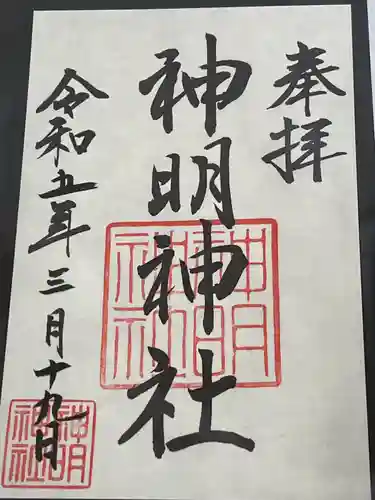 奉拝
神明神社
令和五年三月十九日
神明
神社
神明
神社